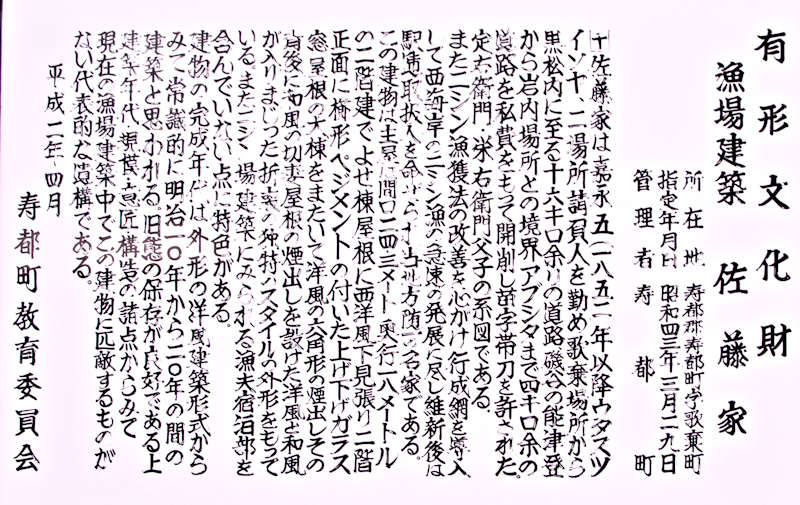 有形文化財
漁場建築 佐藤家
所在地 寿都郡寿都町字歌棄町
指定年月日 昭和四三年三月二九日
管理者 寿都町
佐藤家は嘉永五(一八五二)年以降ウタスツ
イソヤ、二場所請負人を勤め歌棄場所から
黒松内に至る十六キロ余りの道路、磯谷の能津登
から岩内場所との境界アブシタまで四キロ余の
道路を私費をもって開削し苗字帯刀を許された
定右衛門・栄右衛門父子の系図である。
またニシン漁獲法の改善を心がけ行成網を導入
して西海岸のニシン漁の急速の発展に尽し維新後は
駅逓取扱人を命ぜられ当地方随一の名家である。
この建物は主屋は間口二四・三メートル奥行一八メートル
の二階建でよせ棟屋根に西洋風下見張り二階
正面に櫛形ペジメントの付いた上げ下げガラス
窓屋根の大棟をまたいで洋風の六角形の煙出しその
背後に和風の切妻屋根の煙出しを設けた洋風と和風
が入りまじった折衷の独特のスタイルの外形をもって
いる。またニシン場建築にみられる漁夫宿泊部を
含んでいない点に特色がある。
建物の完成年代は外形の洋風建築形式から
みて常識的に明治一〇年から二〇年の間の
建築と思われる。旧態の保存が良好である上
建築年代、規模、意匠、構造の諸点からみて
現在の漁場建築中でこの建物に匹敵するものが
ない代表的な遺構である。
平成二年四月
寿都町教育委員会